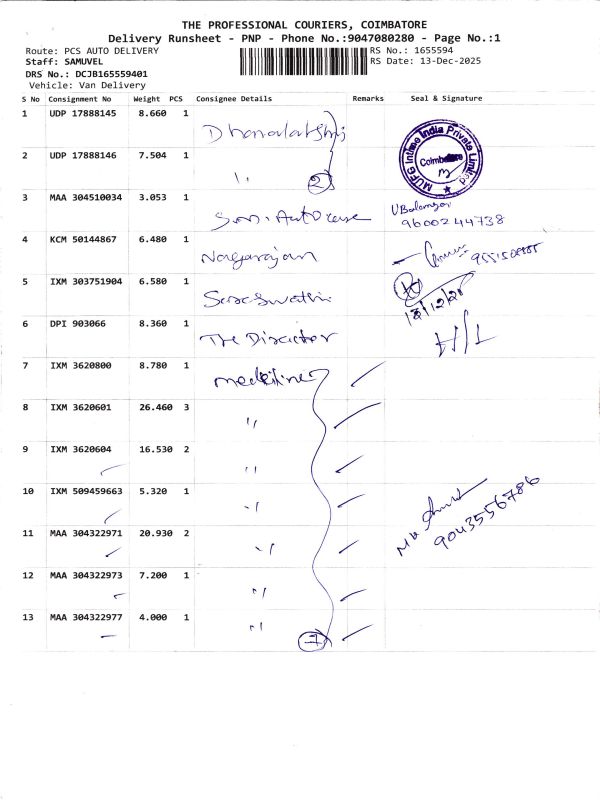 THE PROFESSIONAL COURIERS, COIMBATORE
Delivery Runsheet - PNP - Phone No.:9047080280 - Page No.:1
Route: PCS AUTO DELIVERY
RS No.: 1655594
Staff: SAMUVEL
RS Date: 13-Dec-2025
DRS No.: DCJB165559401
Vehicle: Van Delivery
S No Consignment No Weight PCS Consignee Details Remarks Seal & Signature
1 UDP 17888145 8.660 1 Dhanalakshmi
MUFG Intime India Private Limited
Coimbatore
2 UDP 17888146 7.504 1 ''
2
3 MAA 304510034 3.053 1
9600244738
4 KCM 50144867 6.480 1 Nagarajan
5 IXM 303751904 6.580 1 Saraswathi
6 DPI 903066 8.360 1 The Director
7 IXM 3620800 8.780 1
8 IXM 3620601 26.460 3 ''
9 IXM 3620604 16.530 2 ''
10 IXM 509459663 5.320 1 ''
9043556786
11 MAA 304322971 20.930 2 ''
12 MAA 304322973 7.200 1 ''
13 MAA 304322977 4.000 1 ''
7